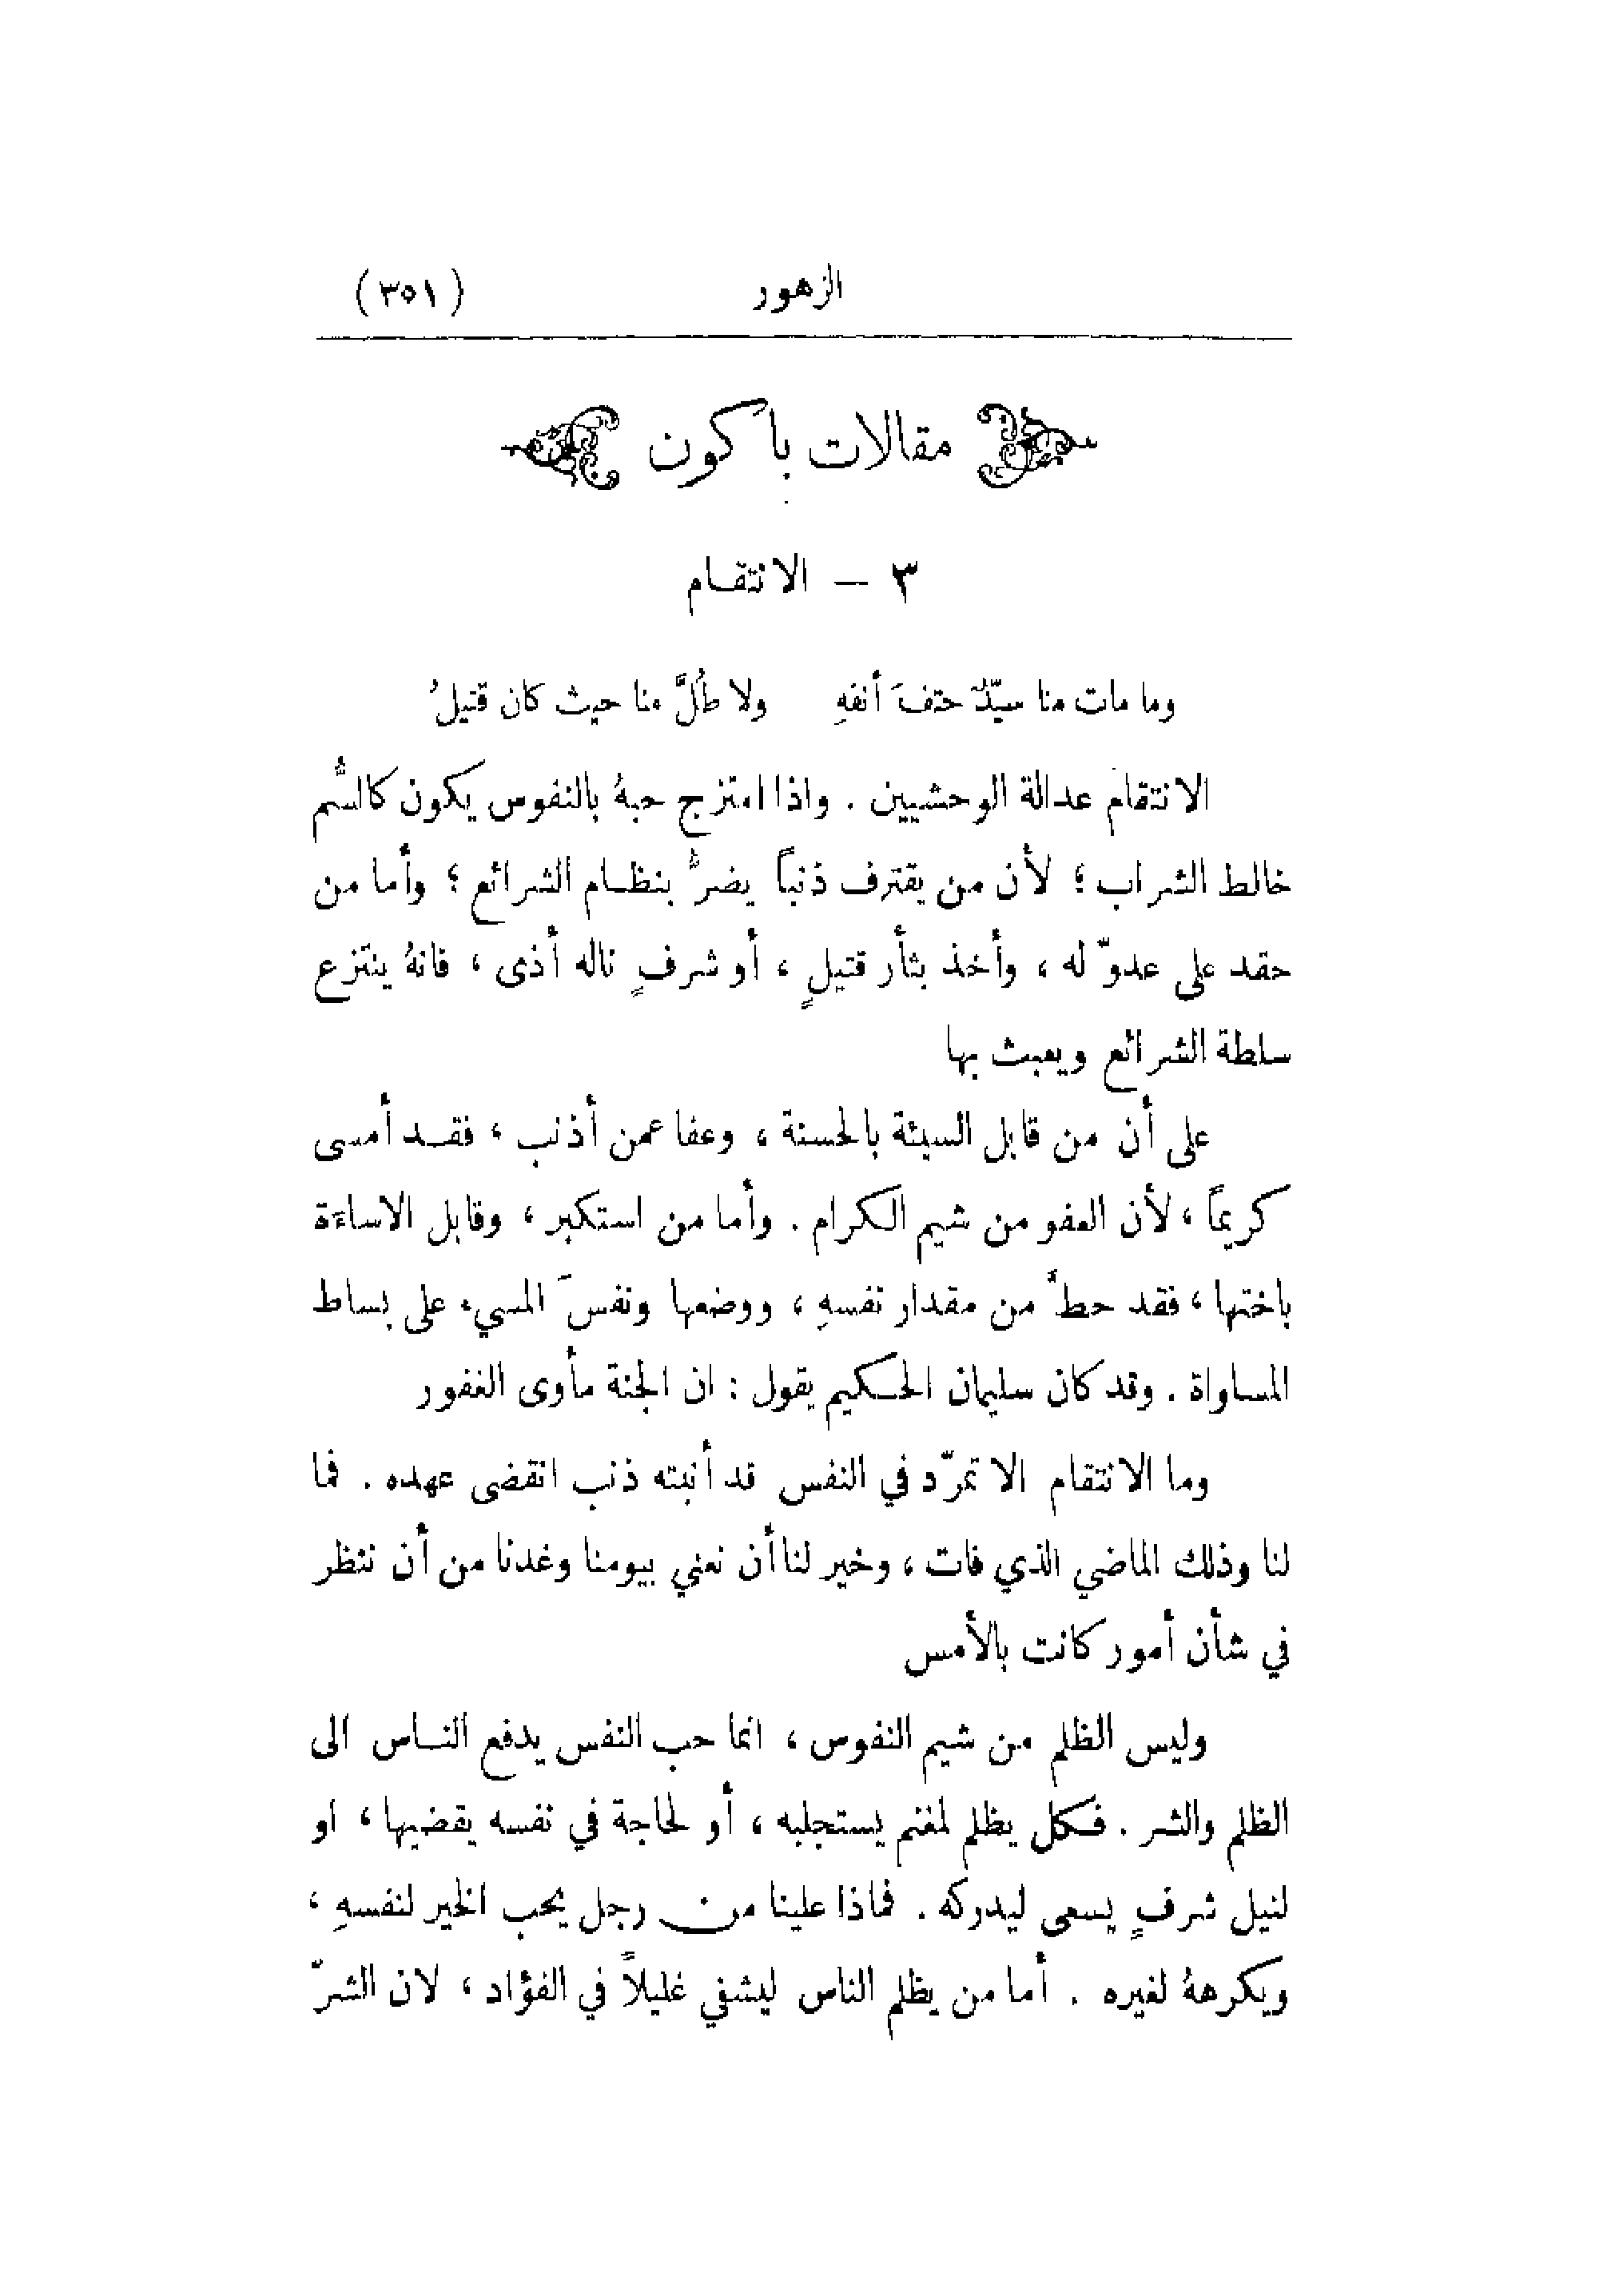 الزهور (٣٥١)
مقالات باكون
٣ – الانتقام
وما مات منا سيّدٌ حتفَ أنفهِ ولا طُلَّ منا حيث كان قتيلُ
الانتقام عدالة الوحشيين . واذا امتزج حبهُ بالنفوس يكون كالسُّم
خالط الشراب ؛ لأن من يقترف ذنباً يضرُّ بنظام الشرائع ؛ وأما من
حقد على عدوّ له ، وأخذ بثأر قتيلٍ ، أو شرفٍ ناله أذى ، فانهُ ينتزع
سلطة الشرائع ويعبث بها
على أن من قابل السيئة بالحسنة ، وعفا عمن أذنب ، فقد أمسى
كريماً ، لأن العفو من شيم الكرام . وأما من استكبر ، وقابل الاساءَة
باختها ، فقد حطَّ من مقدار نفسهِ ، ووضعها ونفسَ المسيء على بساط
المساواة . وقد كان سليمان الحكيم يقول : ان الجنة مأوى الغفور
وما الانتقام الا تمرّد في النفس قد أنبته ذنب انقضى عهده . فما
لنا وذلك الماضي الذي فات ، وخير لنا أن نعني بيومنا وغدنا من أن ننظر
في شأن أمور كانت بالأمس
وليس الظلم من شيم النفوس ، انما حب النفس يدفع الناس الى
الظلم والشر . فكل يظلم لمغنم يستجلبه ، أو لحاجة في نفسه يقضيها ، او
لنيل شرفٍ يسعى ليدركه . فماذا علينا من رجل يحب الخير لنفسهِ ،
ويكرههُ لغيره . أما من يظلم الناس ليشفي غليلاً في الفؤاد ، لان الشرّ